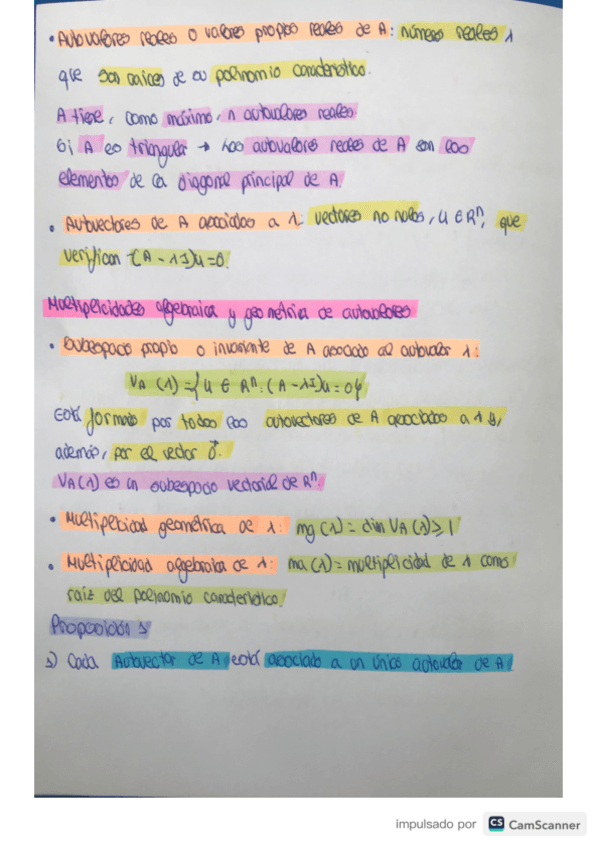 • Autovalores reales o valores propios reales de A: números reales λ
que son raíces de su polinomio característico.
A tiene, como máximo, n autovalores reales
Si A es triangular → los autovalores reales de A son los
elementos de la diagonal principal de A.
• Autovectores de A asociados a λ: vectores no nulos, u ∈ Rⁿ, que
verifican (A - λI)u = 0.
Multiplicidades algebraica y geométrica de autovalores
• Subespacio propio o invariante de A asociado al autovalor λ:
VA (λ) = {u ∈ Rⁿ: (A - λI)u = 0}
Está formado por todos los autovectores de A asociados a λ y,
además, por el vector 0⃗.
VA(λ) es un subespacio vectorial de Rⁿ.
• Multiplicidad geométrica de λ: mg (λ) = dim VA (λ) ≥ 1
• Multiplicidad algebraica de λ: ma (λ) = multiplicidad de λ como
raíz del polinomio característico.
Proposición 1
1) Cada Autovector de A está asociado a un único autovalor de A.
impulsado por CS CamScanner